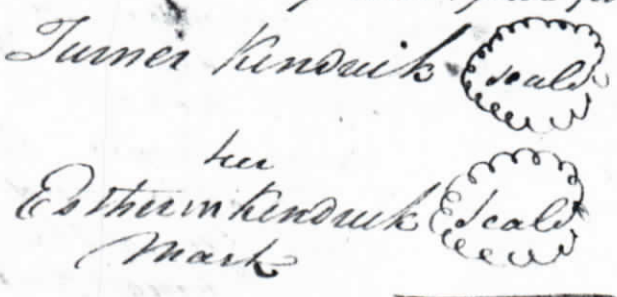 Turner Kendrick seal
her
Esther m Kendrick seal
mark